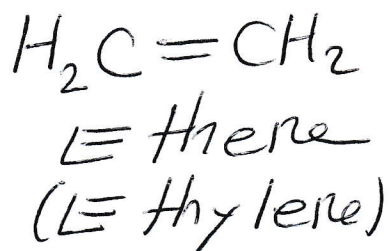 H₂C=CH₂
Ethene
(Ethylene)